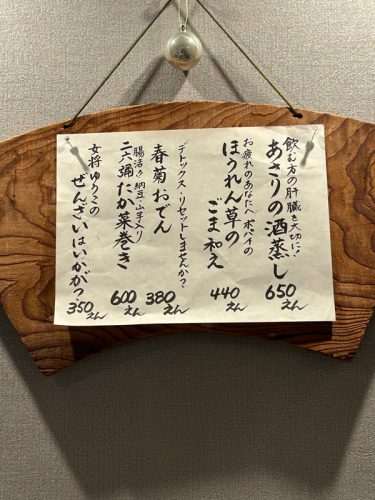 飲む方の肝臓を大切に！
あさりの酒蒸し
650えん
お疲れのあなたへ ポパイの
ほうれん草の
ごま和え
440えん
デトックス・リセットしませんか？
春菊おでん
380えん
腸活き 納豆・山芋入り
二六彌たか菜巻き
600えん
女将ゆりこの
ぜんざいはいかが？
350えん